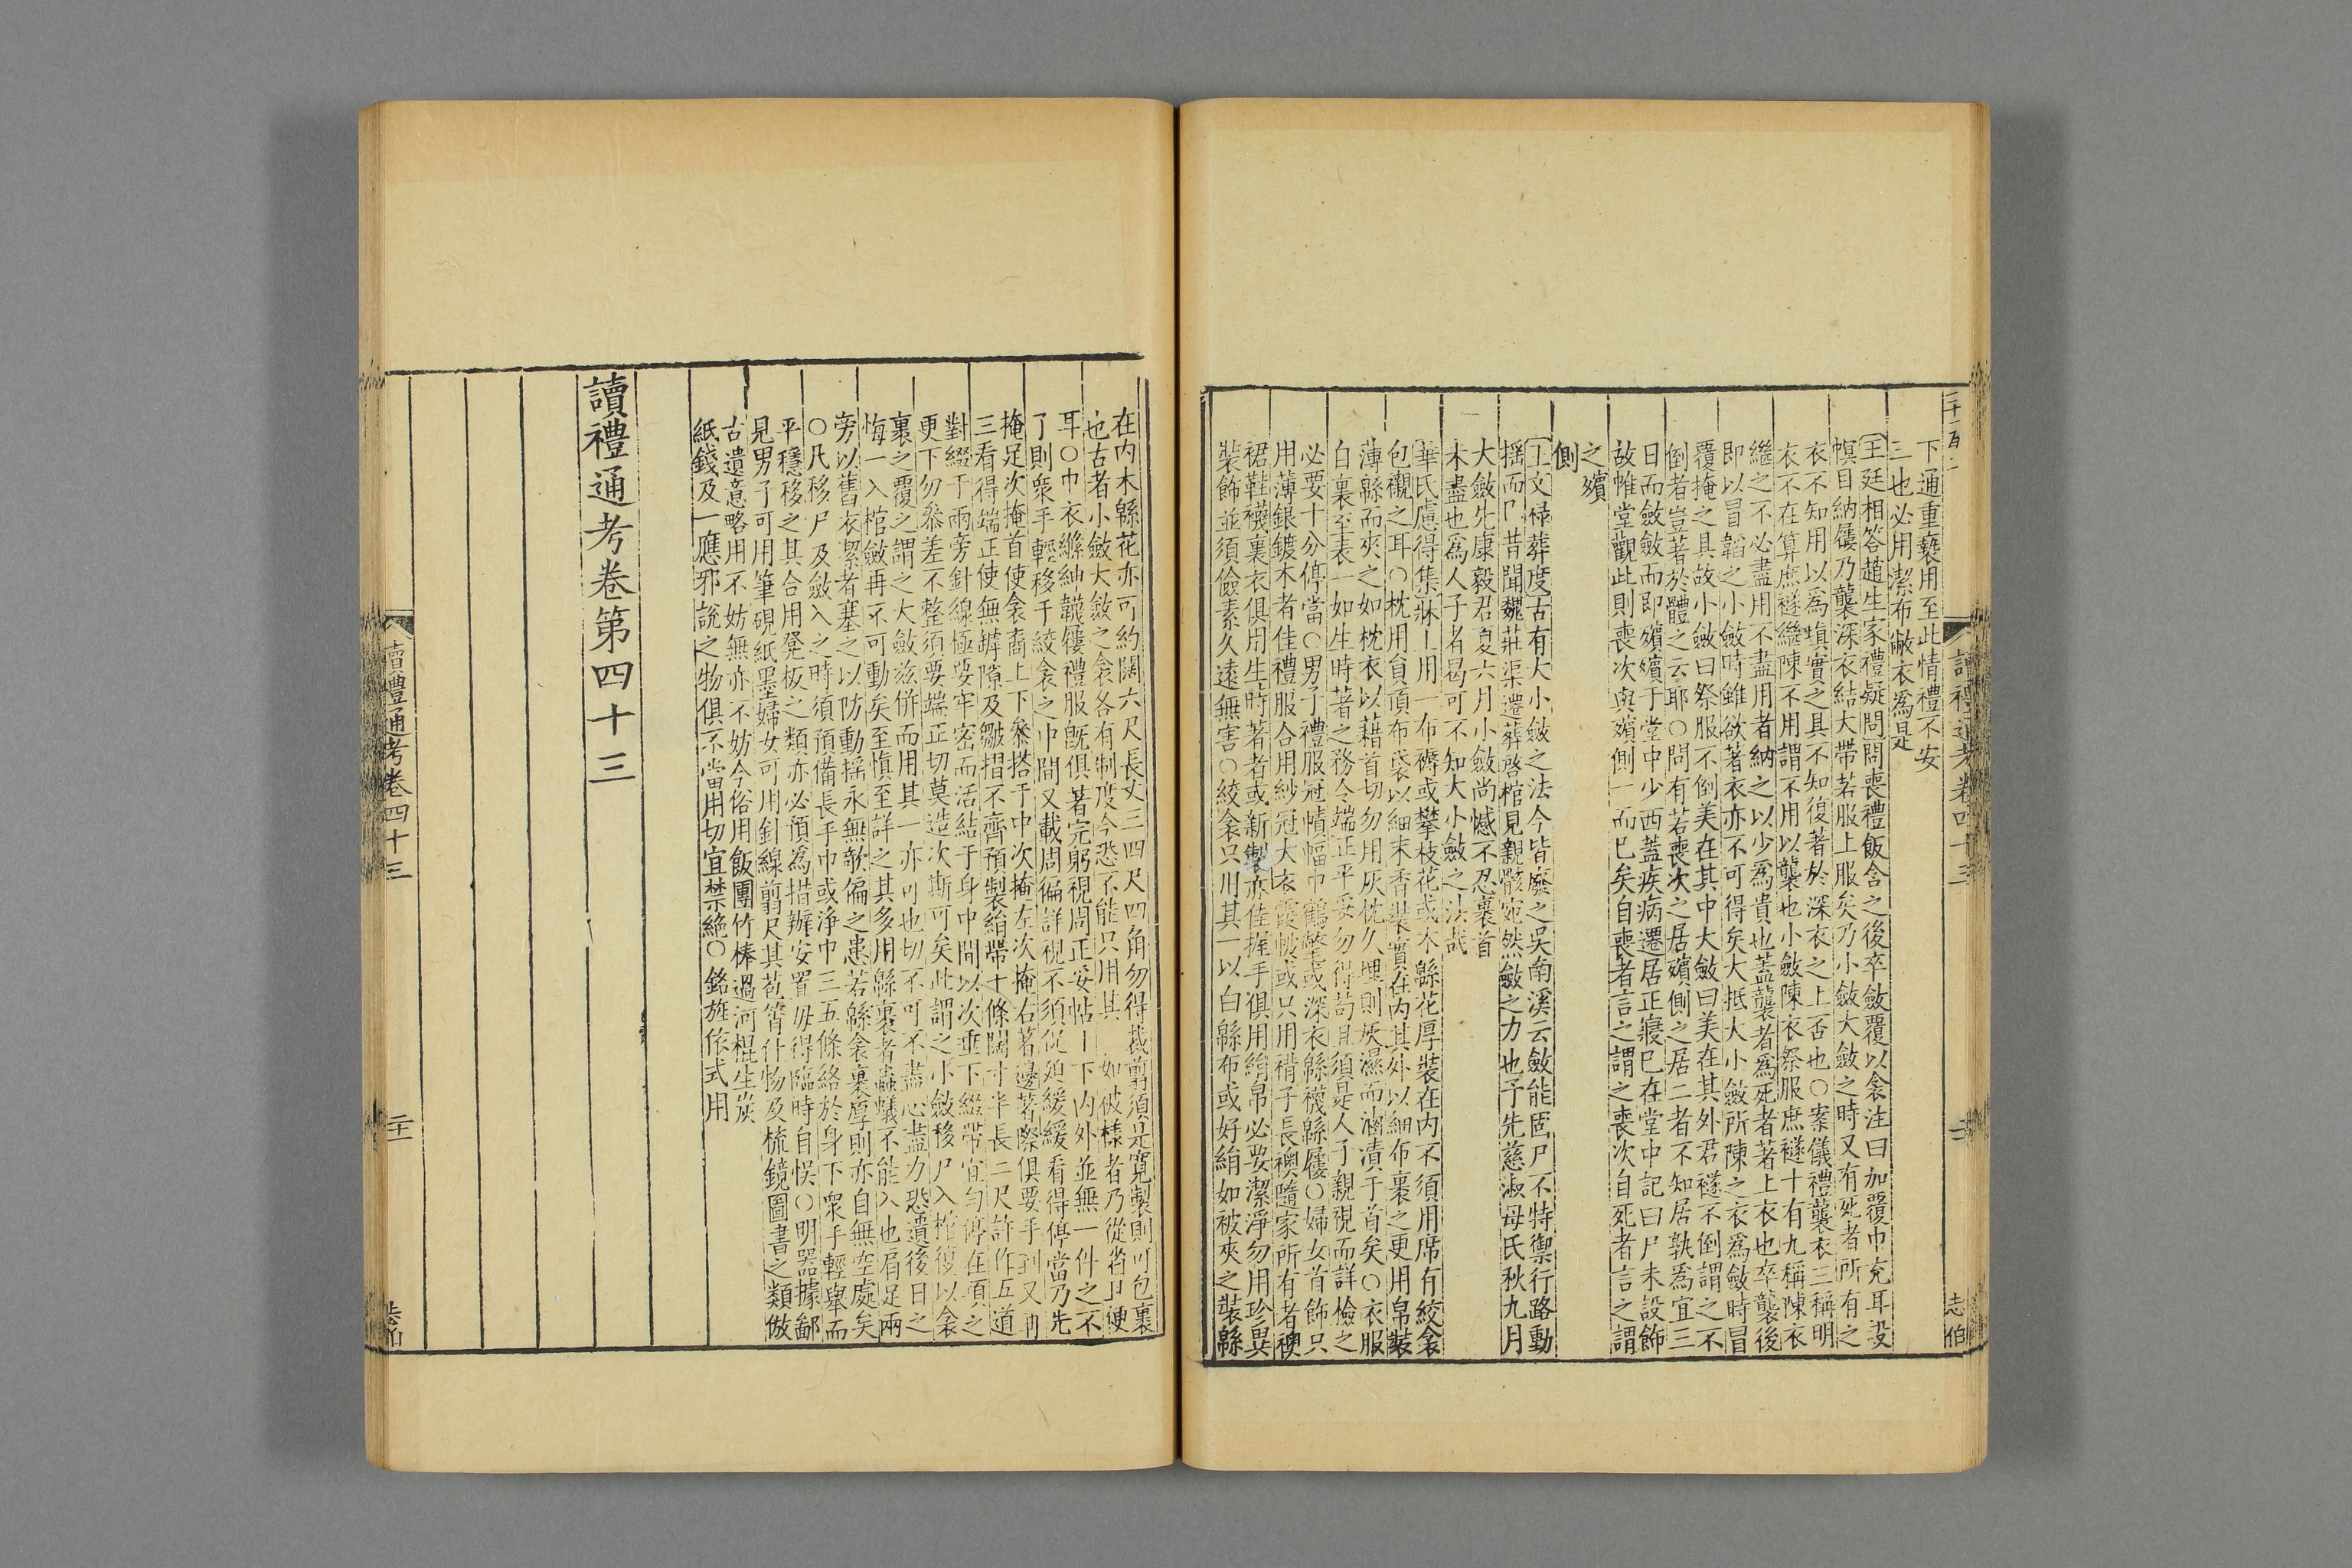 下通重褻用至此情禮不安
三也必用潔布敝衣爲是
王廷相答趙生家禮疑問問喪禮飯含之後卒斂覆以衾注曰加覆巾充耳设
幎目納屨乃襲深衣結大帶若服上服矣乃小斂大斂之時又有死者所有之
衣不知用以爲塡實之具不知復著於深衣之上否也○案儀禮襲衣三稱明
衣不在算庶襚繼陳不用謂不用以襲也小斂陳衣祭服庶襚十有九稱陳衣
繼之不必盡用不盡用者納之以少爲貴也蓋襲者爲死者著上衣也卒襲後
即以冒韜之小斂時雖欲著衣亦不可得矣大抵大小斂所陳之衣爲斂時冒
覆掩之具故小斂曰祭服不倒美在其中大斂曰美在其外君襚不倒謂之不
倒者豈著於體之云耶○問有若喪次之居殯側之居二者不知居孰爲宜三
日而斂斂而即殯殯于堂中少西蓋疾病遷居正寢已在堂中記曰尸未設飾
故帷堂觀此則喪次與殯側一而已矣自喪者言之謂之喪次自死者言之謂
之殯
側
王文祿葬度古有大小斂之法今皆廢之吳南溪云斂能固尸不特禦行路動
揺而已昔聞魏莊渠遷葬啓棺見親骸宛然斂之力也予先慈淑母氏秋九月
大斂先康毅君夏六月小斂尚憾不忍裹首
未盡也爲人子者曷可不知大小斂之法哉
華氏慮得集牀上用一布褥或攀枝花或木緜花厚裝在内不須用席有絞衾
包襯之耳○枕用貟頂布袋以細末香裝實在内其外以細布裹之更用帛裝
薄緜而夾之如枕衣以藉首切勿用灰枕久埋則灰濕而滷漬于首矣○衣服
白裏至表一如生時著之務令端正平妥勿得苟且須是人子親視而詳檢之
必要十分停當○男子禮服冠幘幅巾鶴氅或深衣緜襪緜屨○婦女首飾只
用薄銀鍍木者佳禮服合用紗冠大衣霞帔或只用褙子長襖隨家所有者襖
裙鞋襪裏衣俱用生時著者或新製亦佳握手俱用絹帛必要潔淨勿用珍異
裝飾並須儉素久遠無害○絞衾只用其一以白緜布或好絹如被夾之裝緜
在内木緜花亦可約闊六尺長丈三四尺四角勿得裁剪須是寛製則可包裹
也古者小斂大斂之衾各有制度今恐不能只用其一如被樣者乃從省且便
耳○巾衣縧紳韈屨禮服旣俱著完躬視周正妥帖上下内外並無一件之不
了則衆手輕移于絞衾之中間又載周徧詳視不須促廹緩緩看得停當乃先
掩足次掩首使衾裔上下叅搭于中次掩左次掩右著邊著際俱要手到又再
三看得端正使無罅隙及皺摺不齊預製絹帶十條闊寸半長二尺許作五道
對綴于兩旁針線極要牢密而活結于身中間以次垂下綴帶宜勻停在頂之
更下勿叅差不整須要端正切莫造次斯可矣此謂之小斂移尸入棺復以衾
裹之覆之謂之大斂兹併而用其一亦可也切不可不盡心盡力恐遺後日之
悔一入棺斂再不可動矣至愼至詳之其多用緜裹者蟲蟻不能入也肩足兩
旁以舊衣絮者塞之以防動揺永無欹偏之患若緜衾裹厚則亦自無空處矣
○凡移尸及斂入之時須預備長手巾或浄巾三五條絡於身下衆手輕舉而
平穩移之其合用凳板之類亦必預爲措辦安置毋得臨時自悞○明器據鄙
見男子可用筆硯紙墨婦女可用針線剪尺其苞筲什物及梳鏡圖書之類倣
古遺意略用不妨無亦不妨今俗用飯團竹棒過河棍生炭
紙錢及一應邪說之物俱不當用切宜禁絶○銘旌依式用
讀禮通考卷第四十三
讀禮通考卷四十三